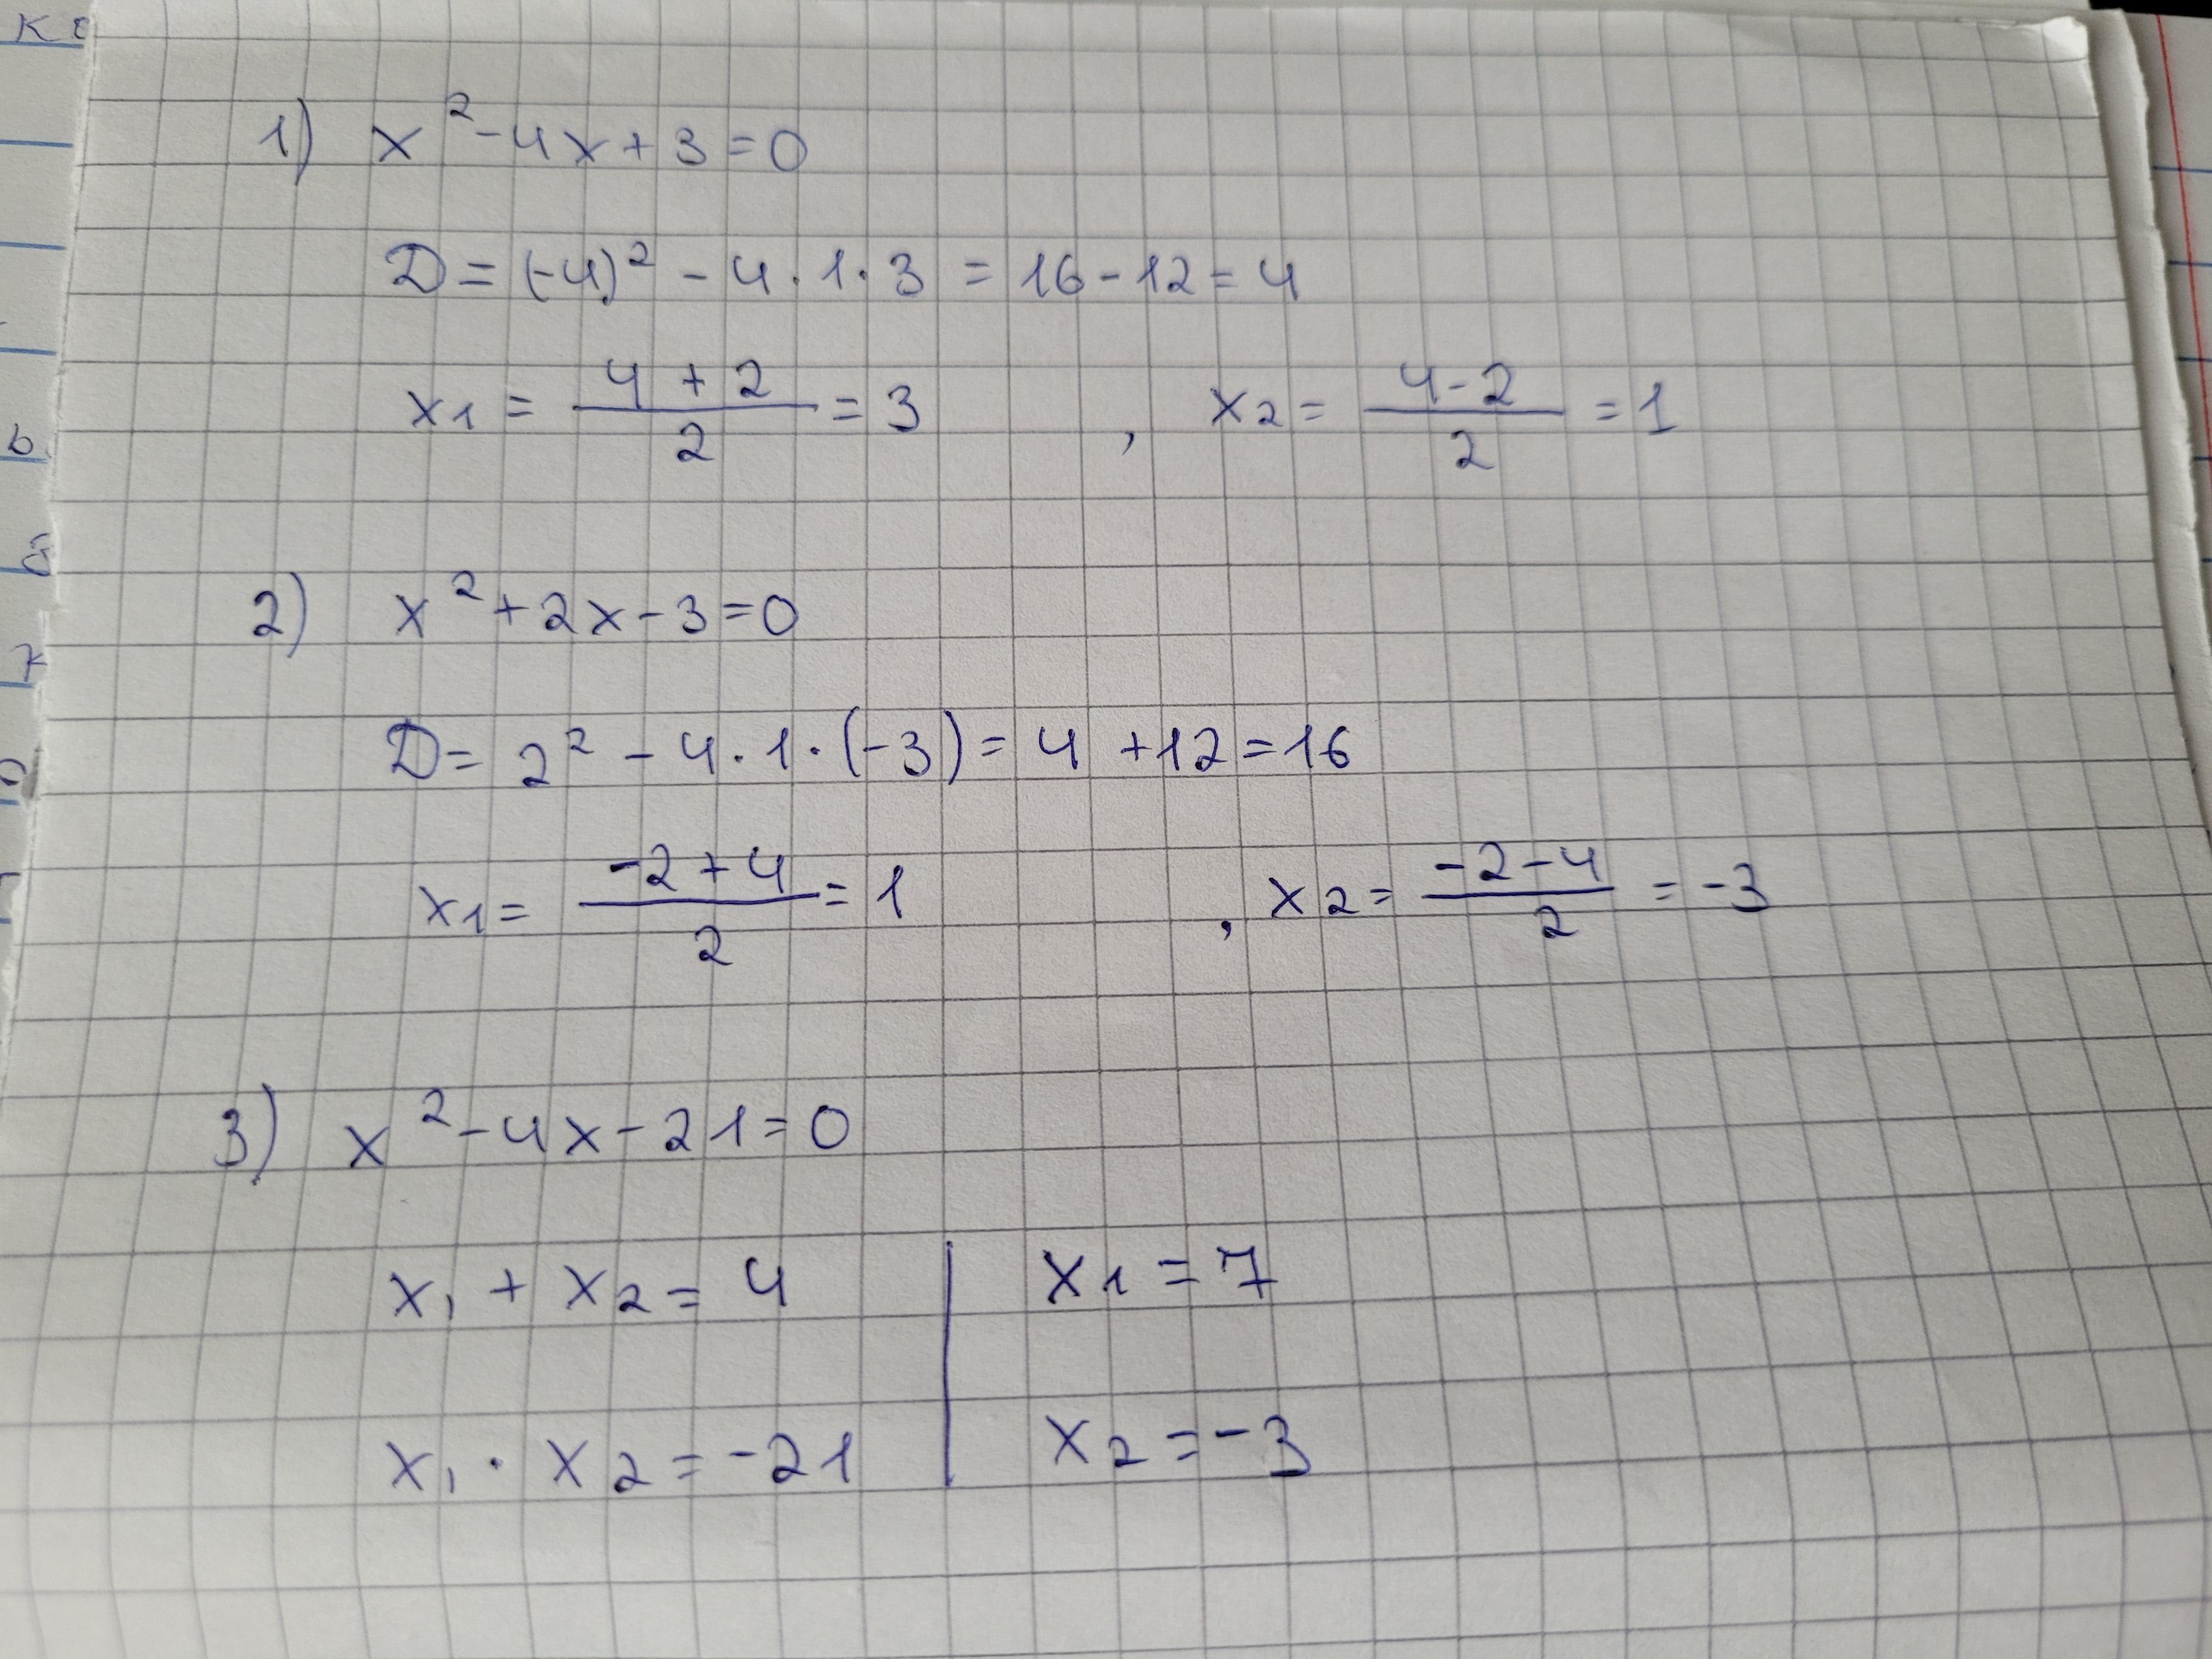 1) x² - 4x + 3 = 0
D = (-4)² - 4 · 1 · 3 = 16 - 12 = 4
x₁ = (4 + 2)/2 = 3 , x₂ = (4 - 2)/2 = 1
2) x² + 2x - 3 = 0
D = 2² - 4 · 1 · (-3) = 4 + 12 = 16
x₁ = (-2 + 4)/2 = 1 , x₂ = (-2 - 4)/2 = -3
3) x² - 4x - 21 = 0
x₁ + x₂ = 4 | x₁ = 7
x₁ · x₂ = -21 | x₂ = -3